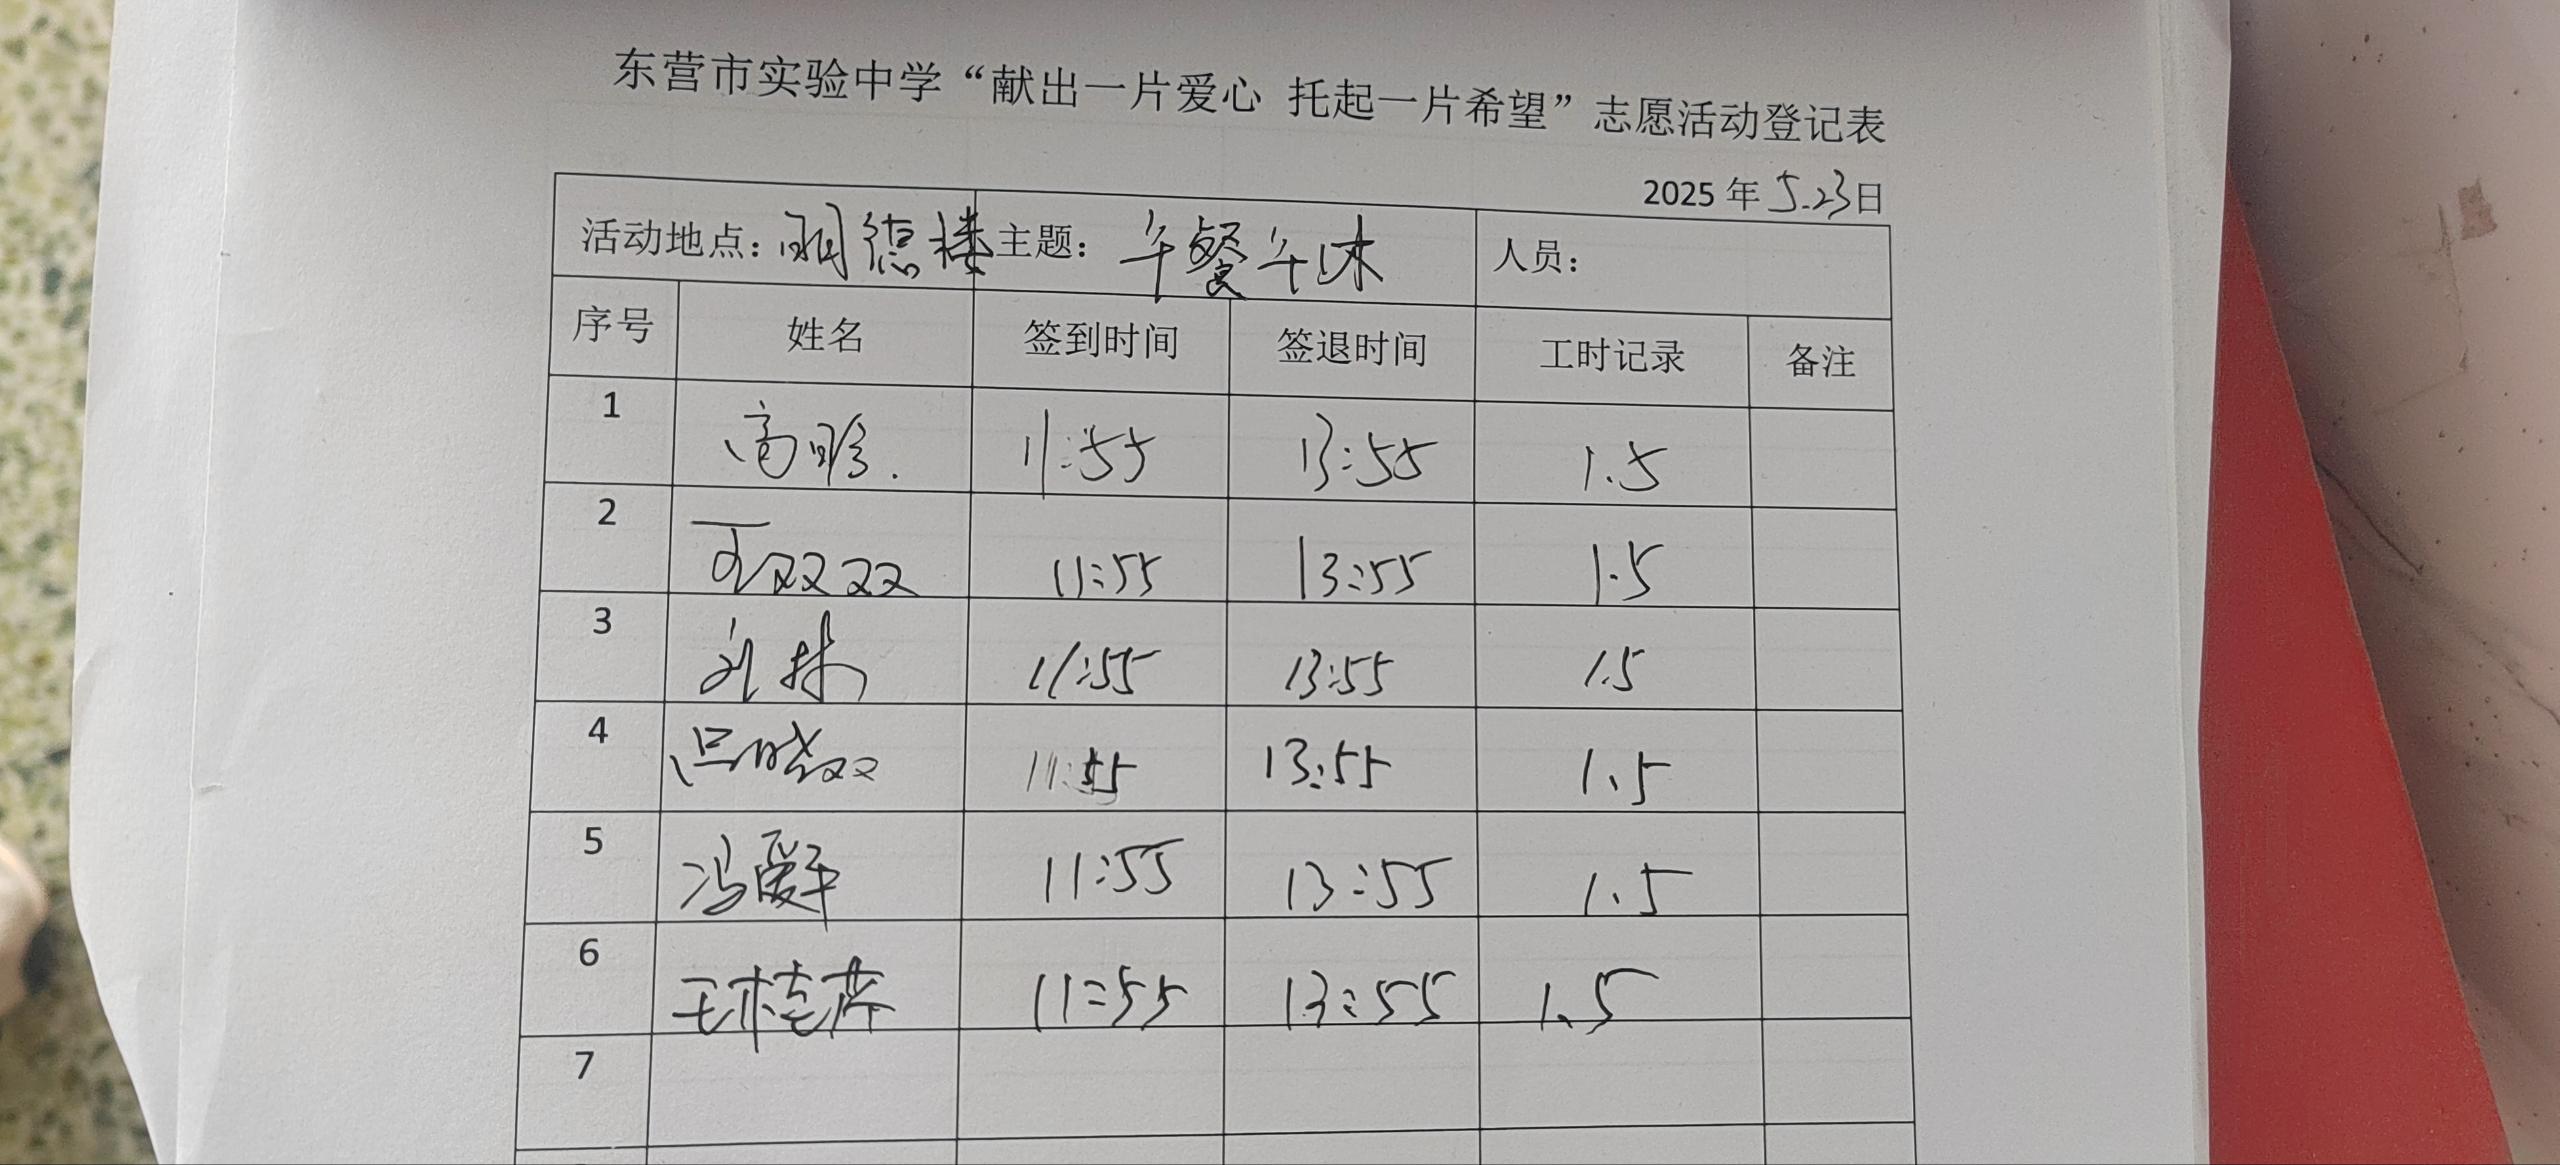 东营市实验中学“献出一片爱心 托起一片希望”志愿活动登记表
2025 年 5.23日
活动地点：明德楼 主题：午餐午休 人员：
序号 姓名 签到时间 签退时间 工时记录 备注
1 高 11:55 13:55 1.5
2 双双 11:55 13:55 1.5
3 刘林 11:55 13:55 1.5
4 吕晓双 11:55 13:55 1.5
5 冯爱平 11:55 13:55 1.5
6 王桂 11:55 13:55 1.5
7